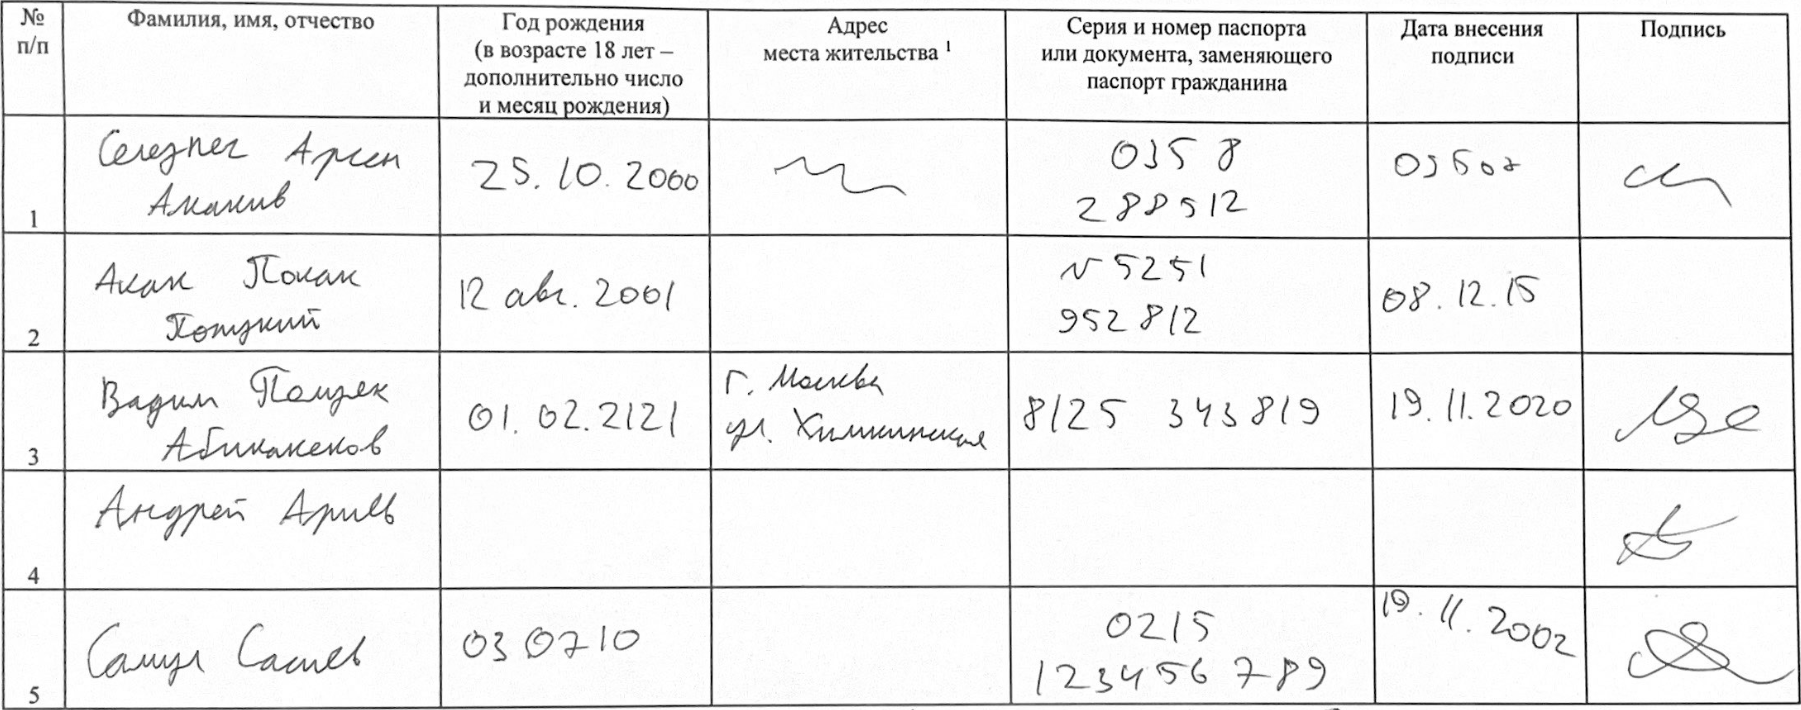 №
п/п
Фамилия, имя, отчество
Год рождения
(в возрасте 18 лет –
дополнительно число
и месяц рождения)
Адрес
места жительства 1
Серия и номер паспорта
или документа, заменяющего
паспорт гражданина
Дата внесения
подписи
Подпись
1
Арсен
25.10.2000
0358
288512
2
Акак Полак
12 авг. 2001
N 5251
952812
08.12.15
3
Вадим
Абикакеков
01.02.2121
г. Москва
ул. Химкинская
8125 343819
19.11.2020
4
Андрей
5
03 07 10
0215
123456789
19.11.2002